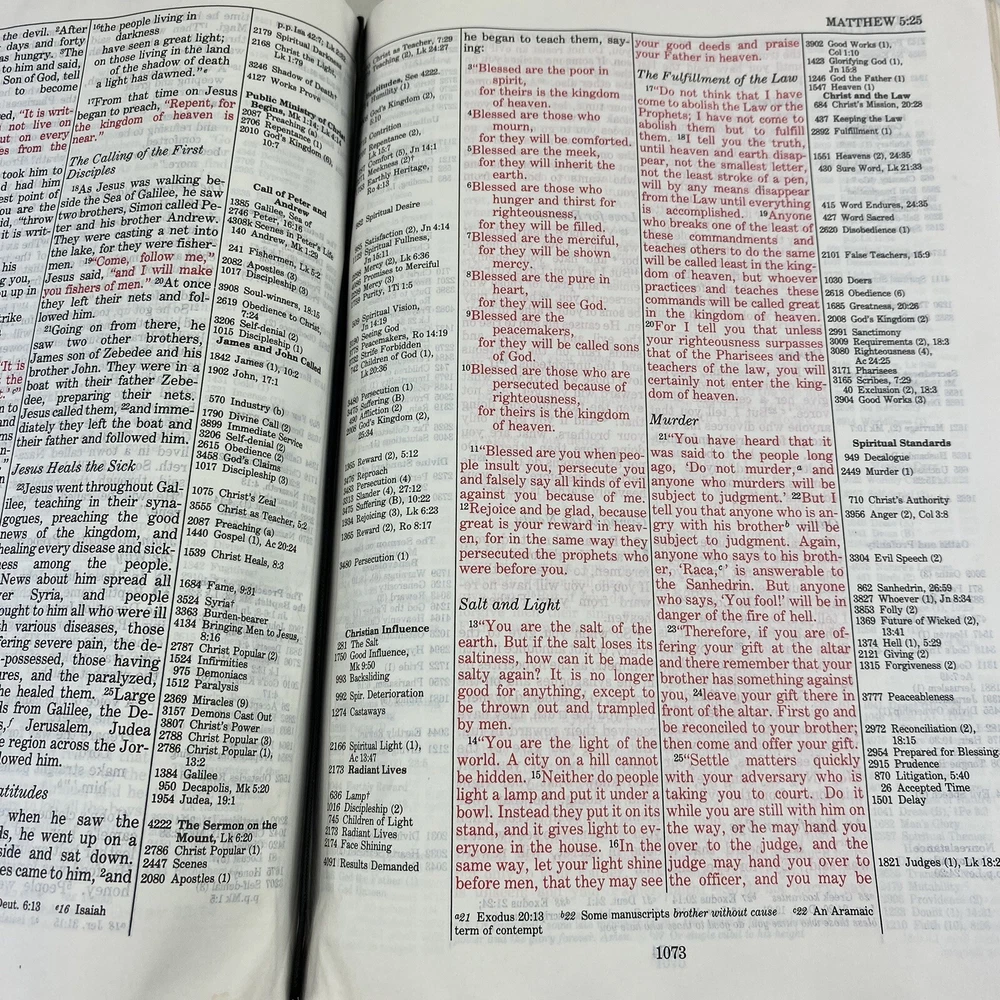 the devil. ²After
days and forty
as hungry. ³The
to him and said,
Son of God, tell
to become
ed, "It is writ-
not live on
ut on every
es from the
took him to
d had him
est point of
ou are the
id, "throw
it is writ-
his
g you,
ou up in
trike
It is
the
¹⁶the people living in
darkness
have seen a great light;
on those living in the land
of the shadow of death
a light has dawned."ᵉ
¹⁷From that time on Jesus
began to preach, "Repent, for
the kingdom of heaven is
near."
The Calling of the First
Disciples
¹⁸As Jesus was walking be-
side the Sea of Galilee, he saw
two brothers, Simon called Pe-
ter and his brother Andrew.
They were casting a net into
the lake, for they were fisher-
men. ¹⁹"Come, follow me,"
Jesus said, "and I will make
you fishers of men." ²⁰At once
they left their nets and fol-
lowed him.
²¹Going on from there, he
saw two other brothers,
James son of Zebedee and his
brother John. They were in a
boat with their father Zebe-
dee, preparing their nets.
Jesus called them, ²²and imme-
diately they left the boat and
their father and followed him.
Jesus Heals the Sick
²³Jesus went throughout Gal-
ilee, teaching in their syna-
gogues, preaching the good
news of the kingdom, and
healing every disease and sick-
ness among the people.
News about him spread all
over Syria, and people
ought to him all who were ill
th various diseases, those
ffering severe pain, the de-
-possessed, those having
ures, and the paralyzed,
he healed them. ²⁵Large
ds from Galilee, the De-
s,ᶠ Jerusalem, Judea
e region across the Jor-
lowed him.
atitudes
when he saw the
ds, he went up on a
side and sat down.
es came to him, ²and
Deut. 6:13 ᵉ16 Isaiah
p.p. Isa 42:7,
2179 Spiritual Darkness
2168 Christ the Light,
Lk 1:79
3246 Shadow of Death†
4127 Works Prove
Public Ministry of Christ
Begins, Mk 1:14, Lk 4:14
2087 Preaching (a)
2706 Repentance (1)
2010 God's Kingdom (6),
10:7
Call of Peter and
Andrew
1385 Galilee, Sea of
2746 Peter, 16:16
4308k Scenes in Peter's Life
140 Andrew, Mk 1:29
241 Fishermen, Lk 5:2
2082 Apostles (3)
1017 Discipleship (3)
3908 Soul-winners, 18:15
2619 Obedience to Christ,
7:24
3206 Self-denial (2)
1015 Discipleship (1)
James and John Called
1842 James (1), 10:2
1902 John, 17:1
570 Industry (b)
1790 Diving Call (2)
3899 Immediate Service
3206 Self-denial (2)
2615 Obedience (2)
3458 God's Claims
1017 Discipleship (3)
1075 Christ's Zeal
3555 Christ as Teacher, 5:2
2087 Preaching (a)
1440 Gospel (1), Ac 20:24
1539 Christ Heals, 8:3
1684 Fame, 9:31
3524 Syria†
3363 Burden-bearer
4134 Bringing Men to Jesus,
8:16
2787 Christ Popular (2)
1524 Infirmities
975 Demoniacs
1512 Paralysis
2369 Miracles (9)
3157 Demons Cast Out
3807 Christ's Power
2788 Christ Popular (3)
2786 Christ Popular (1),
13:2
1384 Galilee
950 Decapolis, Mk 5:20
1954 Judea, 19:1
4222 The Sermon on the
Mount, Lk 6:20
2786 Christ Popular (1)
2447 Scenes
2080 Apostles (1)
MATTHEW 5:25
Christ as Teacher, 7:29
Teaching (2), Lk 24:27
See 4222
Humility (1)
God's Kingdom (2),
Contrition
Repentance (2),
Lk 15:7
Comfort (5), Jn 14:1
Meekness (2)†
Earthly Heritage,
Ro 4:13
Spiritual Desire
Satisfaction (2), Jn 4:14
Spiritual Fullness,
Jn 15:11
Mercy (2), Lk 6:36
Promises to Merciful
Mercy (3)
Purity, 1Ti 1:5
Spiritual Vision,
Jn 14:19
Seeing God
Peacemakers, Ro 14:19
Strife Forbidden
Children of God (1),
Lk 20:36
3480 Persecution (1)
3475 Suffering (B)
490 Affliction (2)
2008 God's Kingdom (2),
25:34
1365 Reward (2), 5:12
3476 Reproach
3483 Persecution (4)
3213 Slander (4), 27:12
3475 Suffering (B), 10:22
1934 Rejoicing (3), Lk 6:23
1365 Reward (2), Ro 8:17
3480 Persecution (1)
Christian Influence
281 The Salt
1750 Good Influence,
Mk 9:50
993 Backsliding
992 Spir. Deterioration
1274 Castaways
2166 Spiritual Light (1),
Ac 13:47
2173 Radiant Lives
636 Lamp†
1016 Discipleship (2)
745 Children of Light
2173 Radiant Lives
2174 Face Shining
4091 Results Demanded
he began to teach them, say-
ing:
³"Blessed are the poor in
spirit,
for theirs is the kingdom
of heaven.
⁴Blessed are those who
mourn,
for they will be comforted.
⁵Blessed are the meek,
for they will inherit the
earth.
⁶Blessed are those who
hunger and thirst for
righteousness,
for they will be filled.
⁷Blessed are the merciful,
for they will be shown
mercy.
⁸Blessed are the pure in
heart,
for they will see God.
⁹Blessed are the
peacemakers,
for they will be called sons
of God.
¹⁰Blessed are those who are
persecuted because of
righteousness,
for theirs is the kingdom
of heaven.
¹¹"Blessed are you when peo-
ple insult you, persecute you
and falsely say all kinds of evil
against you because of me.
¹²Rejoice and be glad, because
great is your reward in heav-
en, for in the same way they
persecuted the prophets who
were before you.
Salt and Light
¹³"You are the salt of the
earth. But if the salt loses its
saltiness, how can it be made
salty again? It is no longer
good for anything, except to
be thrown out and trampled
by men.
¹⁴"You are the light of the
world. A city on a hill cannot
be hidden. ¹⁵Neither do people
light a lamp and put it under a
bowl. Instead they put it on its
stand, and it gives light to ev-
eryone in the house. ¹⁶In the
same way, let your light shine
before men, that they may see
your good deeds and praise
your Father in heaven.
The Fulfillment of the Law
¹⁷"Do not think that I have
come to abolish the Law or the
Prophets; I have not come to
abolish them but to fulfill
them. ¹⁸I tell you the truth,
until heaven and earth disap-
pear, not the smallest letter,
not the least stroke of a pen,
will by any means disappear
from the Law until everything
is accomplished. ¹⁹Anyone
who breaks one of the least of
these commandments and
teaches others to do the same
will be called least in the king-
dom of heaven, but whoever
practices and teaches these
commands will be called great
in the kingdom of heaven.
²⁰For I tell you that unless
your righteousness surpasses
that of the Pharisees and the
teachers of the law, you will
certainly not enter the king-
dom of heaven.
Murder
²¹"You have heard that it
was said to the people long
ago, 'Do not murder,ᵃ and
anyone who murders will be
subject to judgment.' ²²But I
tell you that anyone who is an-
gry with his brotherᵇ will be
subject to judgment. Again,
anyone who says to his broth-
er, 'Raca,ᶜ' is answerable to
the Sanhedrin. But anyone
who says, 'You fool!' will be in
danger of the fire of hell.
²³"Therefore, if you are of-
fering your gift at the altar
and there remember that your
brother has something against
you, ²⁴leave your gift there in
front of the altar. First go and
be reconciled to your brother;
then come and offer your gift.
²⁵"Settle matters quickly
with your adversary who is
taking you to court. Do it
while you are still with him on
the way, or he may hand you
over to the judge, and the
judge may hand you over to
the officer, and you may be
3902 Good Works (1),
Col 1:10
1423 Glorifying God (1),
Jn 15:8
1246 God the Father (1)
1547 Heaven (1)
Christ and the Law
684 Christ's Mission, 20:28
437 Keeping the Law
2892 Fulfillment (1)
1551 Heavens (2), 24:35
430 Sure Word, Lk 21:33
415 Word Endures, 24:35
427 Word Sacred
2620 Disobedience (1)
2101 False Teachers, 15:9
1030 Doers
2618 Obedience (6)
1685 Greatness, 20:26
2008 God's Kingdom (2)
2991 Sanctimony
3009 Requirements (2), 18:3
3080 Righteousness (4),
Ac 24:25
3171 Pharisees
3165 Scribes, 7:29
40 Exclusion (2), 18:3
3904 Good Works (3)
Spiritual Standards
949 Decalogue
2449 Murder (1)
710 Christ's Authority
3956 Anger (2), Col 3:8
3304 Evil Speech (2)
862 Sanhedrin, 26:59
3827 Whoever (1), Jn 8:34
3853 Folly (2)
1369 Future of Wicked (2),
13:41
1374 Hell (1), 5:29
2121 Giving (2)
1315 Forgiveness (2)
3777 Peaceableness
2972 Reconciliation (2),
18:15
2954 Prepared for Blessing
2915 Prudence
870 Litigation, 5:40
26 Accepted Time
1501 Delay
1821 Judges (1), Lk 18:2
ᵃ21 Exodus 20:13 ᵇ22 Some manuscripts brother without cause ᶜ22 An Aramaic
term of contempt
1073